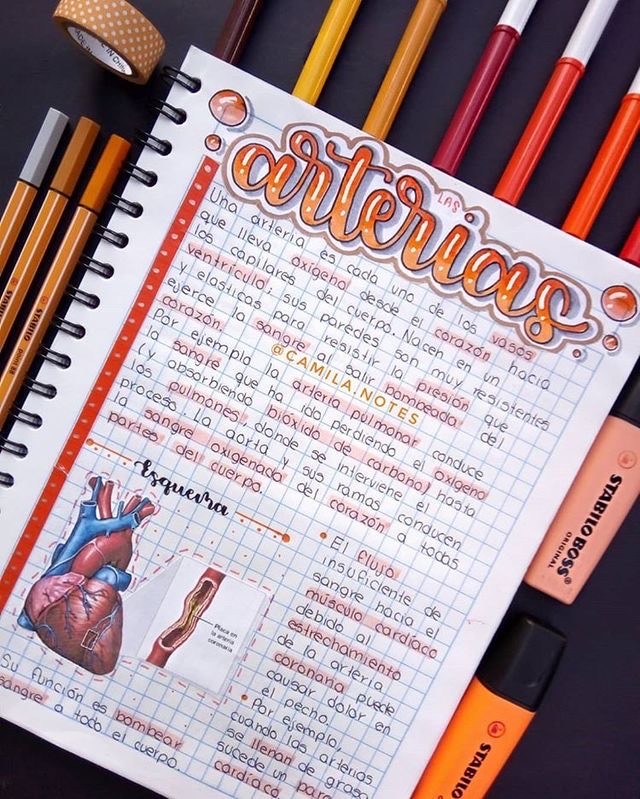 MADE IN CHINA
LAS
arterias
Una arteria es cada uno de los vasos
que lleva oxígeno desde el corazón hacia
los capilares del cuerpo. Nacen en un
ventrículo; sus paredes son muy resistentes
y elásticas para resistir la presión que
ejerce la sangre al salir bombeada del
corazón.
@CAMILA.NOTES
Por ejemplo la arteria pulmonar conduce
la sangre que ha ido perdiendo el oxígeno
(y absorbiendo bióxido de carbono) hasta
los pulmones, donde se interviene el
proceso. La aorta y sus ramas conducen
la sangre oxigenada del corazón a todas
partes del cuerpo.
Esquema
Placa en
la arteria
coronaria
Su función es bombear
sangre a todo el cuerpo.
• El flujo
insuficiente de
sangre hacia el
músculo cardíaco
debido al
estrechamiento
de la arteria
coronaria puede
causar dolor en
el pecho.
• Por ejemplo,
cuando las arterias
se llenan de grasa
sucede un paro
cardíaco.
STABILO
STABILO
STABILO BOSS
ORIGINAL
STABILO